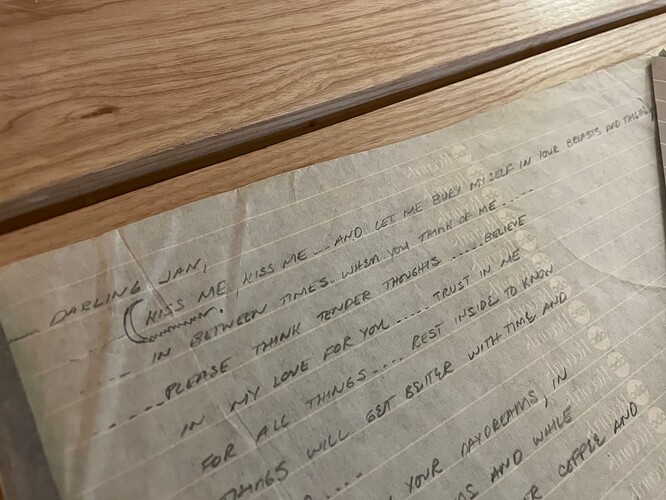 DARLING JAN,
(KISS ME, KISS ME — AND LET ME BURY MYSELF IN YOUR BREASTS AND THIGHS)
.... IN BETWEEN TIMES.. WHEN YOU THINK OF ME .....
.....PLEASE THINK TENDER THOUGHTS .....BELIEVE
IN MY LOVE FOR YOU ..... TRUST IN ME
FOR ALL THINGS .... REST INSIDE TO KNOW
THINGS WILL GET BETTER WITH TIME AND
.... YOUR DAYDREAMS, IN
AND WHILE
COFFEE AND